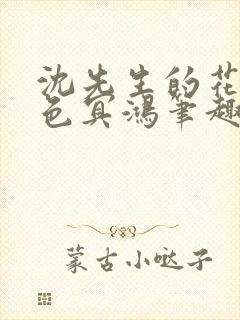 沈先生的花
色冥鸿笔趣
蒙古小哒子